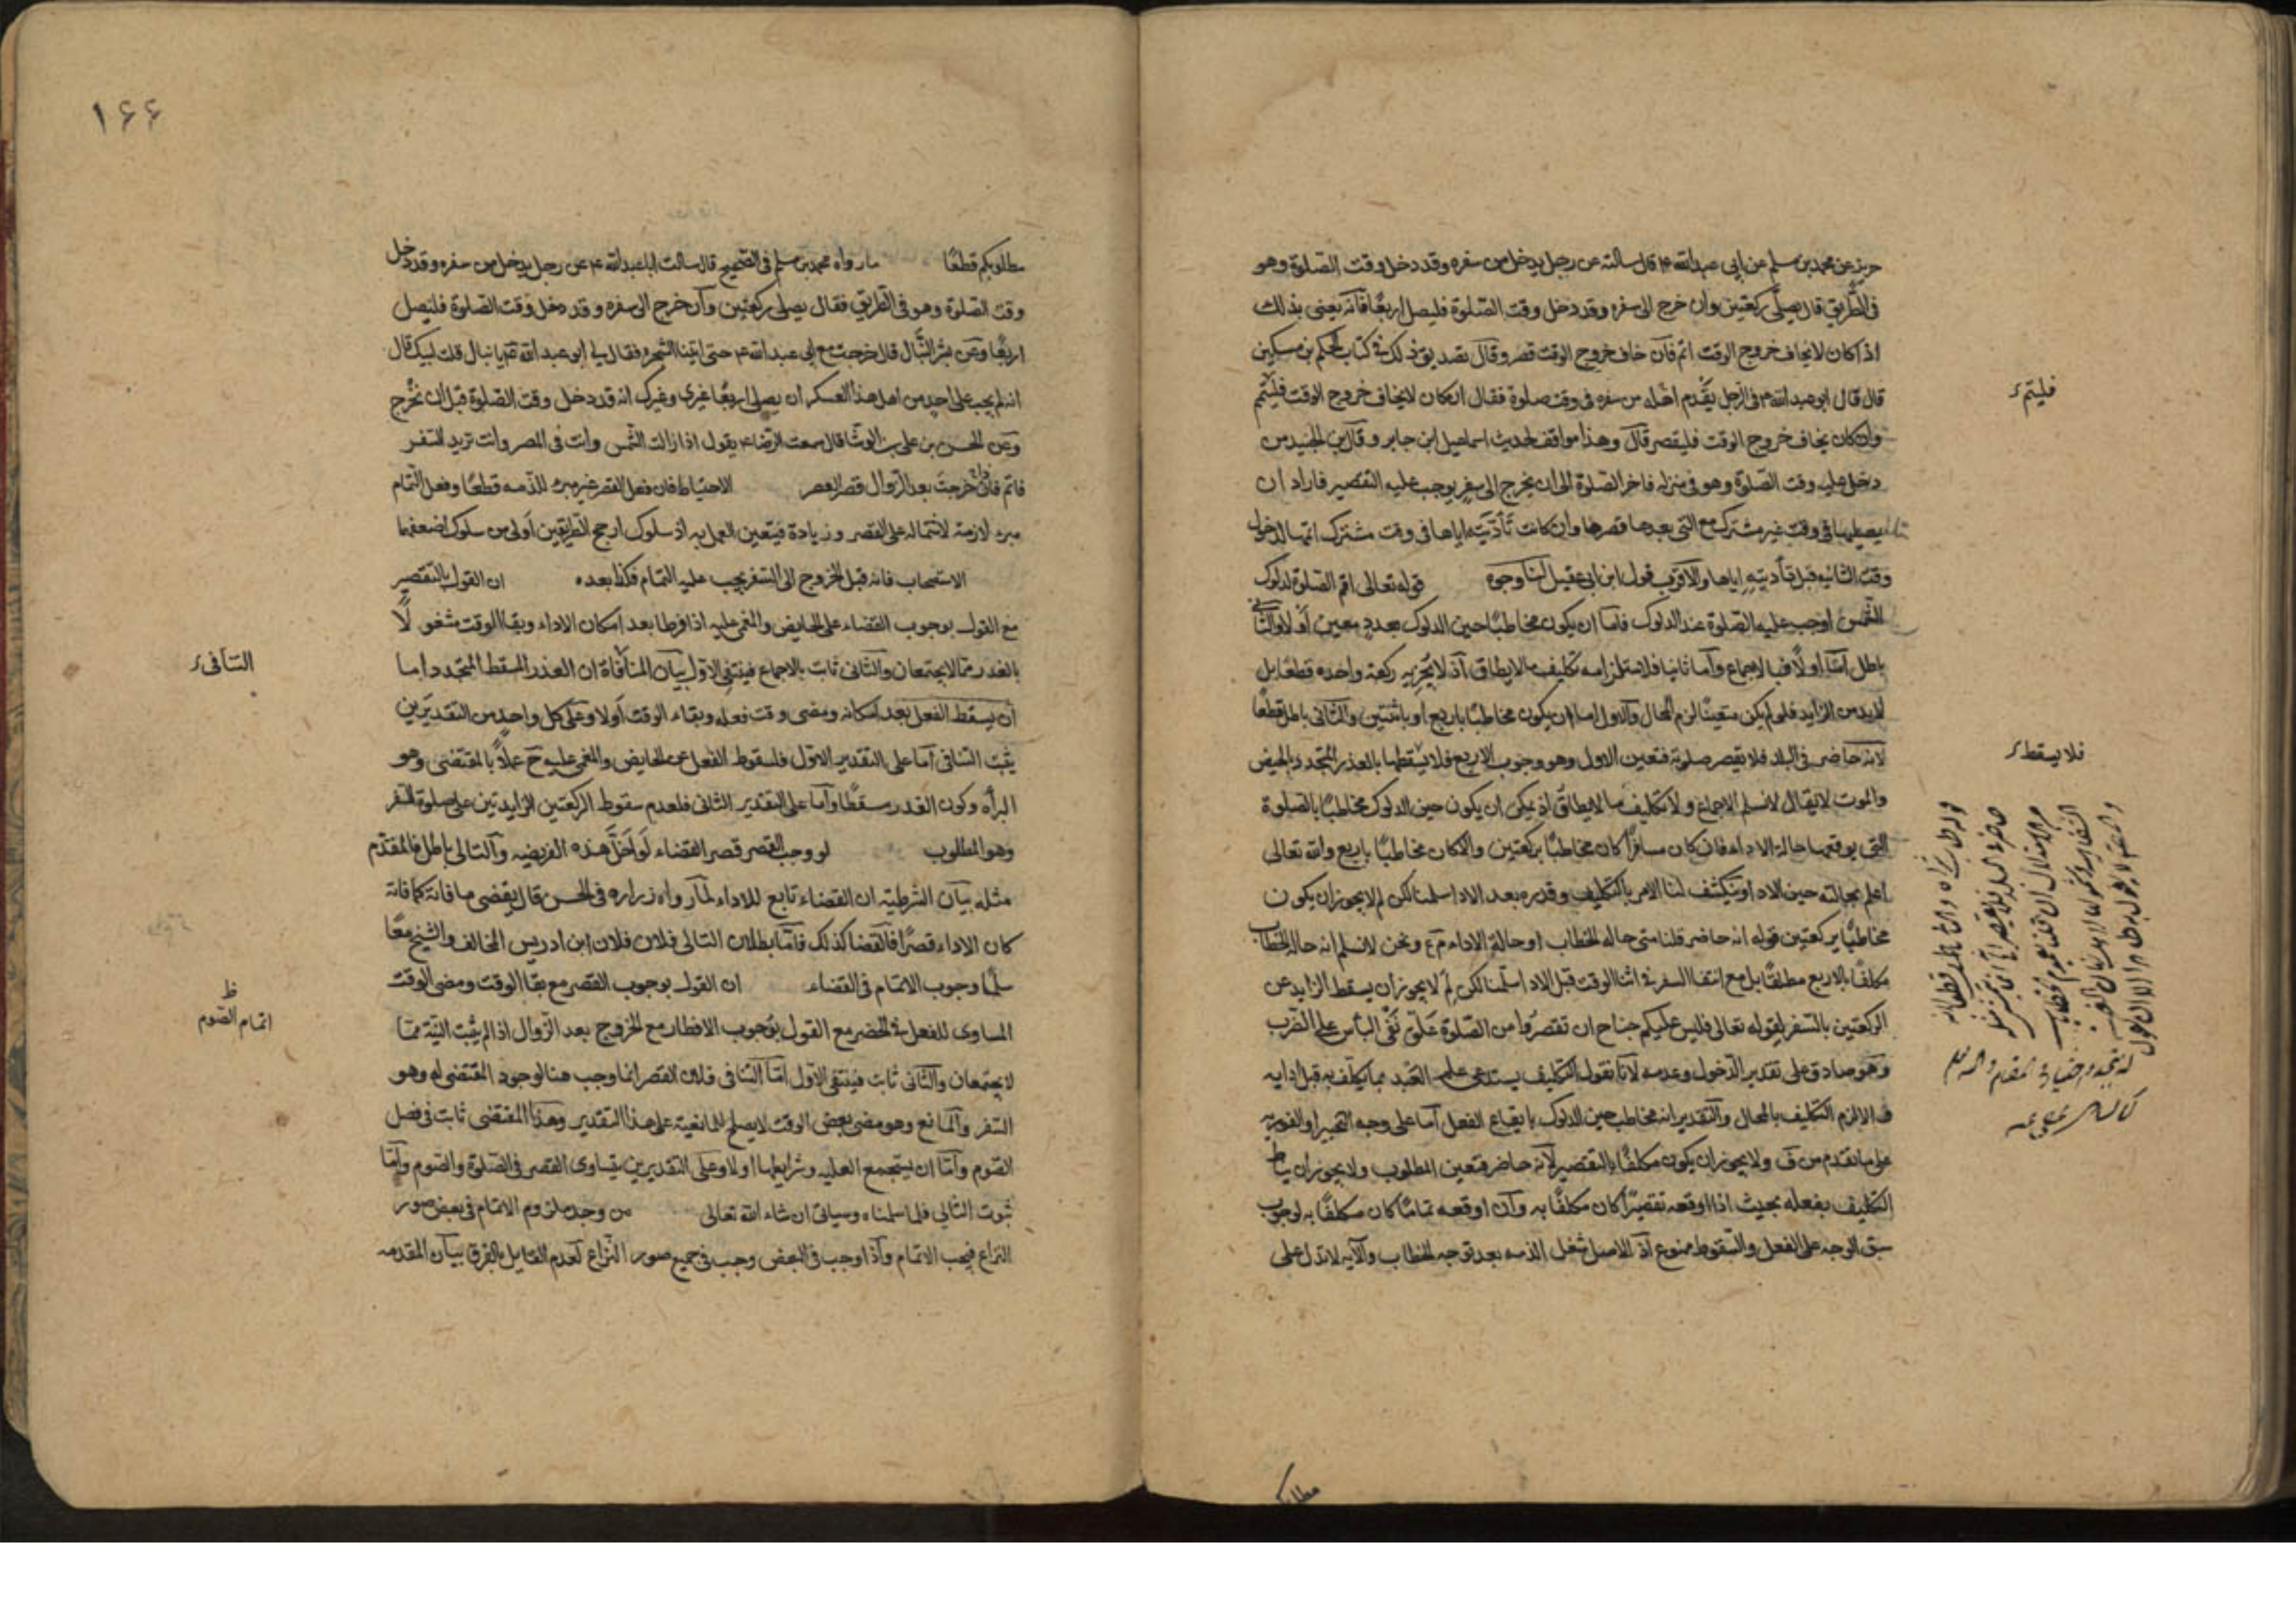 حريز عن محمد بن مسلم عن ابي عبدالله ع قال سالته عن رجل يدخل من سفره وقد دخل وقت الصلوة وهو
في الطريق قال يصلى ركعتين وان خرج الى سفره وقد دخل وقت الصلوة فليصل اربعا فانه يعنى بذلك
اذا كان لا يخاف خروج الوقت اتم فان خاف خروج الوقت قصر وقال تصديق ذلك في كتاب الحكم بن مسكين
قال قال ابو عبدالله ع في الرجل يقدم من سفره فى وقت صلوة فقال ان كان لا يخاف خروج الوقت فليتم
وان كان يخاف خروج الوقت فليقصر قال وهذا موافق لحديث اسماعيل ابن جابر وقال ابن الجنيد من
دخل عليه وقت الصلوة وهو فى منزله فاخر الصلوة الى ان يخرج الى سفر يوجب عليه التقصير فاراد ان
يصليها فى وقت غير مشترك مع التى بعدها قصرها وان كانت تأديته اياها فى وقت مشترك اتمها لدخول
وقت الثانيه قبل تأديته اياها والاقرب قول ابن ابى عقيل لنا وجوه قوله تعالى اقم الصلوة لدلوك
الشمس اوجب عليه الصلوة عند الدلوك فاما ان يكون مخاطبا حين الدلوك بعدد معين أو لا والثانى
باطل اما أولا فبالاجماع وأما ثانيا فلاستلزامه تكليف ما لا يطاق اذ لا يجزيه ركعة واحده قطعا بل
لابد من الزايد فلو لم يكن متعينا لزم المحال والاول اما ان يكون مخاطبا باربع او باثنتين والثانى باطل قطعا
لانه حاضر فى البلد فلا يقصر صلوته فتعين الاول وهو وجوب الاربع فلا يسقطها بالعذر المتجدد كالحيض
والموت لا يقال لا نسلم الاجماع ولا تكليف ما لا يطاق اذ يمكن ان يكون حين الدلوك مخاطبا بالصلوة
التى يوقعها حالة الاداء فان كان مسافرا كان مخاطبا بركعتين والا كان مخاطبا باربع والله تعالى
اعلم بحالته حين الادا وينكشف لنا الامر بالتكليف وقدره بعد الادا سلمنا لكن لم لا يجوز ان يكون
مخاطبا بركعتين قوله انه حاضر قلنا متى حاله الخطاب او حالة الاداء م ع ونحن لا نسلم انه حالة الخطاب
مكلفا بالاربع مطلقا بل مع انتفا السفر فى اثنا الوقت قبل الادا سلمنا لكن لم لا يجوز ان يسقط الزايد عن
الركعتين بالسفر لقوله تعالى فليس عليكم جناح ان تقصروا من الصلوة علق نفى البأس على الضرب
وهو صادق على تقدير الدخول وعدمه لانا نقول التكليف يستدعى علم العبد بما يكلف به قبل ادايه
والا لزم التكليف بالمحال والتقدير انه مخاطب حين الدلوك بايقاع الفعل اما على وجه التخيير او الفوريه
على ما تقدم من ولا يجوز ان يكون مكلفا بالتقصير لانه حاضر فتعين المطلوب ولا يجوز ان يناط
التكليف بفعله بحيث اذا اوقعه تقصيرا كان مكلفا به وان اوقعه تماما كان مكلفا به لوجوب
سبق الوجه على الفعل والسقوط ممنوع اذ الاصل شغل الذمه بعد توجه الخطاب والآيه لا تدل على
فليتم
فلا يسقط
مطلوبكم قطعا ما رواه محمد بن مسلم فى الصحيح قال سالت ابا عبدالله ع عن رجل يدخل من سفره وقد دخل
وقت الصلوة وهو فى الطريق فقال يصلى ركعتين وان خرج الى سفره وقد دخل وقت الصلوة فليصل
اربعا وعن بشر النبال قال خرجت مع ابى عبدالله ع حتى اتينا الشجره فقال لى ابو عبدالله ع يا نبال قلت لبيك قال
انه لم يجب على احد من اهل هذا العسكر ان يصلى اربعا غيرى وغيرك انه قد دخل وقت الصلوة قبل ان نخرج
وعن الحسن بن على بن الوشا قال سمعت الرضا ع يقول اذا زالت الشمس وانت فى المصر وانت تريد السفر
فاتم فاذا خرجت بعد الزوال قصر العصر الاحتياط فان فعل القصر غير مبرئ للذمه قطعا وفعل التمام
مبرء لازمة لاشتماله على القصر وزيادة فيتعين العمل به اذ سلوك ارجح الطريقين اولى من سلوك اضعفهما
الاستصحاب فانه قبل الخروج الى السفر يجب عليه التمام فكذا بعده ان القول بالتقصير
مع القول بوجوب القضاء على الحايض والمغمى عليه اذا فرطا بعد امكان الاداء وبقا الوقت مشغولا
بالعذر مما لا يجتمعان والثانى ثابت بالاجماع فينتفى الاول بيان المنافاة ان العذر المسقط المتجدد اما
أن يسقط الفعل بعد امكانه ومضى وقت فعله وبقاء الوقت أولا وعلى كل واحد من التقديرين
يثبت التنافى اما على التقدير الاول فلسقوط الفعل عن الحايض والمغمى عليه ح عملا بالمقتضى وهو
البراه وكون العذر مسقطا وأما على التقدير الثانى فلعدم سقوط الركعتين الزايدتين على صلوة السفر
وهو المطلوب لو وجب القصر قصر القضاء لو اخل هذه الفريضه والتالى باطل فالمقدم
مثله بيان الشرطية ان القضاء تابع للاداء لما رواه زراره فى الحسن قال يقضى ما فاته كما فاته
كان الاداء قصرا فالقضا كذلك فاما بطلان التالى فلان فلان ابن ادريس المخالف والشيخ معا
سلما وجوب الاتمام فى القضاء ان القول بوجوب القصر مع بقا الوقت ومضى الوقت
المساوى للفعل فى الحضر مع القول بوجوب الافطار مع الخروج بعد الزوال اذا لم يثبت النية مما
لا يجتمعان والثانى ثابت فينتفى الاول اما التنافى فلان القصر انما وجب هنا لوجود المقتضى له وهو
السفر والمانع وهو مضى بعض الوقت لا يصلح للمانعية على هذا التقدير وهذا المقتضى ثابت فى فصل
الصوم وأما ان يستجمع العليه وشرايطها اولا وعلى التقديرين يتساوى القصر فى الصلوة والصوم وأما
ثبوت التالى فلما سلمناه وسياتى ان شاء الله تعالى من وجد ملزوم الاتمام فى بعض صور
النزاع فيجب الاتمام واذا وجب فى البعض وجب فى جميع صور النزاع لعدم القايل بالفرق بيان المقدمه
التنافى
ظ
اتمام الصوم
۱۶۶